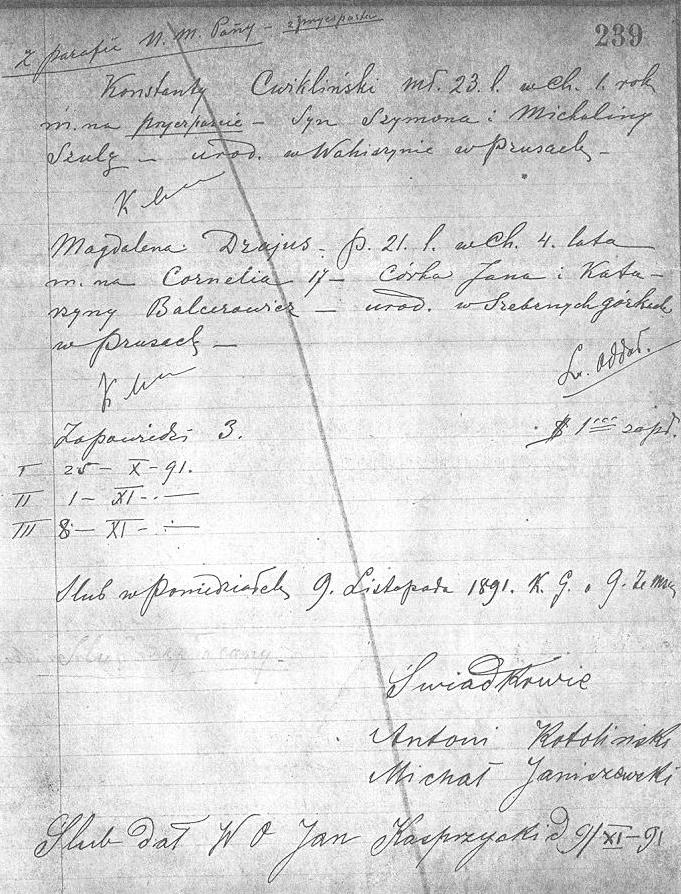 239
z parafii N. M. Pany – z przyczepania
Konstanty Cwikliński mł. 23. l. w Ch. 1. rok
m. na – Syn Szymona i Michaliny
Szulz – urod. w w Prusach –
Magdalena Drajus – p. 21. l. w Ch. 4. lata
m. na Cornelia 17 – córka Jana i Kata-
rzyny Balcerowicz – urod. w Srebrnych górkach
w Prusach –
Św. oddał.
Zapowiedzi 3.
$ 1 zapł.
I 25 – X – 91.
II 1 – XI – . —
III 8 – XI – . —
Slub w Poniedziałek 9. Listopada 1891. K. G. o 9. ze mszą
Swiadkowie
Antoni Kotoliński
Michał Janiszewski
Slub dał W O Jan Kasprzycki d 9/XI – 91